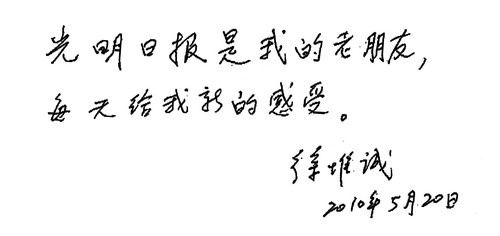 光明日报是我的老朋友，
每天给我新的感受。
徐惟诚
2010年5月20日